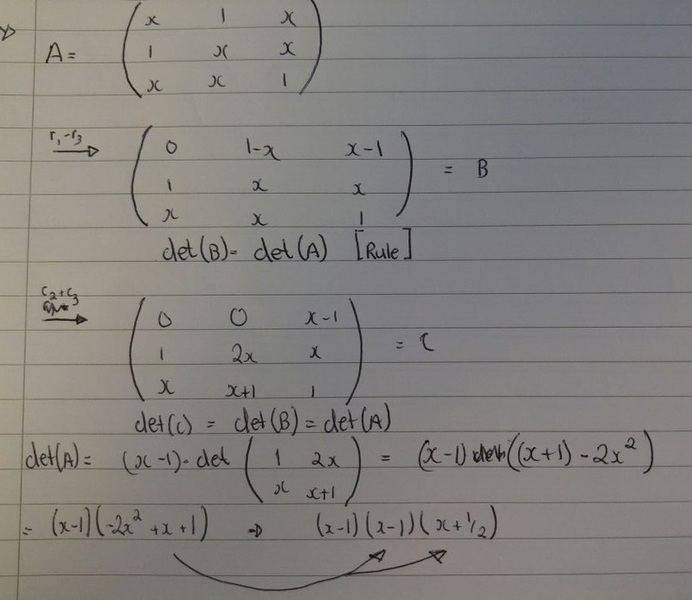 A= ( x 1 x
1 x x
x x 1 )
r₁-r₃ → ( 0 1-x x-1
1 x x
x x 1 ) = B
det(B)= det(A) [Rule]
c₂+c₃ → ( 0 0 x-1
1 2x x
x x+1 1 ) = C
det(C) = det(B) = det(A)
det(A)= (x-1)·det ( 1 2x
x x+1 ) = (x-1) ((x+1) - 2x²)
= (x-1)(-2x²+x+1) ⇒ (x-1)(x-1)(x+1/2)